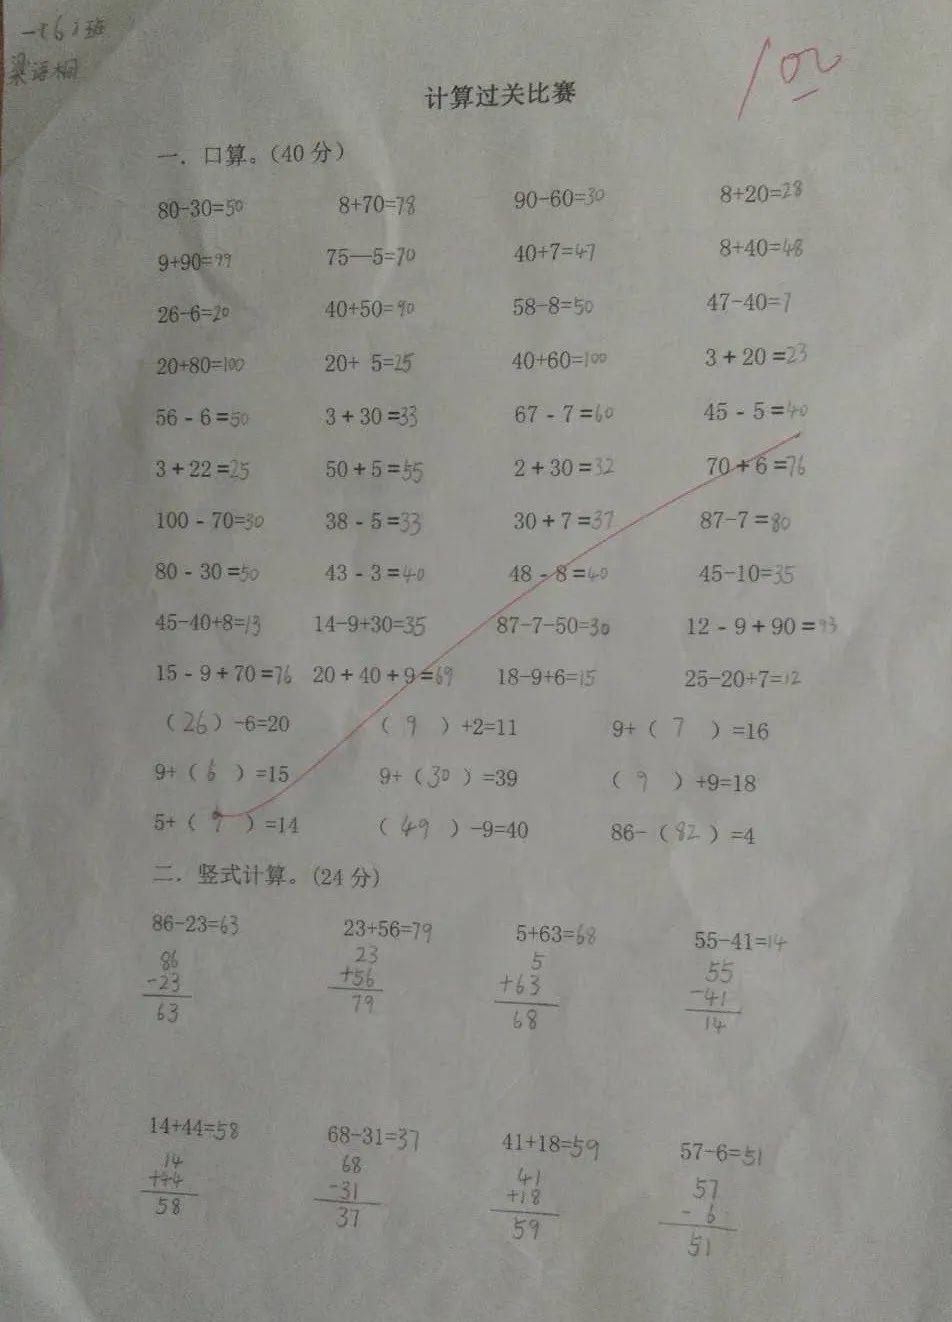 一(6)班
梁语桐
100
计算过关比赛
一. 口算。(40分)
80-30=50 8+70=78 90-60=30 8+20=28
9+90=99 75—5=70 40+7=47 8+40=48
26-6=20 40+50=90 58-8=50 47-40=7
20+80=100 20+ 5=25 40+60=100 3+20=23
56-6=50 3+30=33 67-7=60 45-5=40
3+22=25 50+5=55 2+30=32 70+6=76
100-70=30 38-5=33 30+7=37 87-7=80
80-30=50 43-3=40 48-8=40 45-10=35
45-40+8=13 14-9+30=35 87-7-50=30 12-9+90=93
15-9+70=76 20+40+9=69 18-9+6=15 25-20+7=12
(26)-6=20 (9)+2=11 9+(7)=16
9+(6)=15 9+(30)=39 (9)+9=18
5+(9)=14 (49)-9=40 86-(82)=4
二. 竖式计算。(24分)
86-23=63 23+56=79 5+63=68 55-41=14
86 23 5 55
-23 +56 +63 -41
63 79 68 14
14+44=58 68-31=37 41+18=59 57-6=51
14 68 41 57
+44 -31 +18 - 6
58 37 59 51